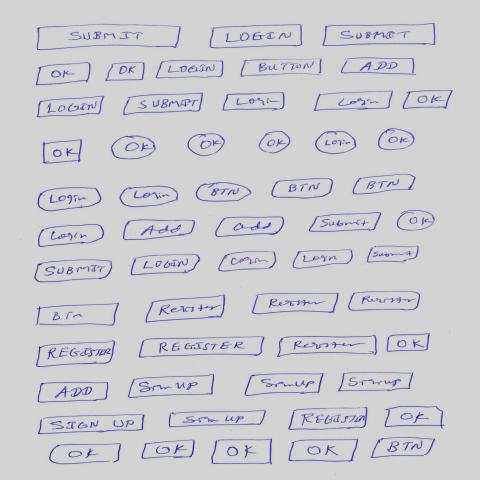 SUBMIT LOGIN SUBMIT
OK OK LOGIN BUTTON ADD
LOGIN SUBMIT Login Login OK
OK OK OK OK Login OK
Login Login BTN BTN BTN
Login Add add Submit OK
SUBMIT LOGIN Login Login Submit
Btn Register Register Register
REGISTER REGISTER Register OK
ADD SignUp SignUp Signup
SIGN UP Sign up REGISTER OK
OK OK OK OK BTN